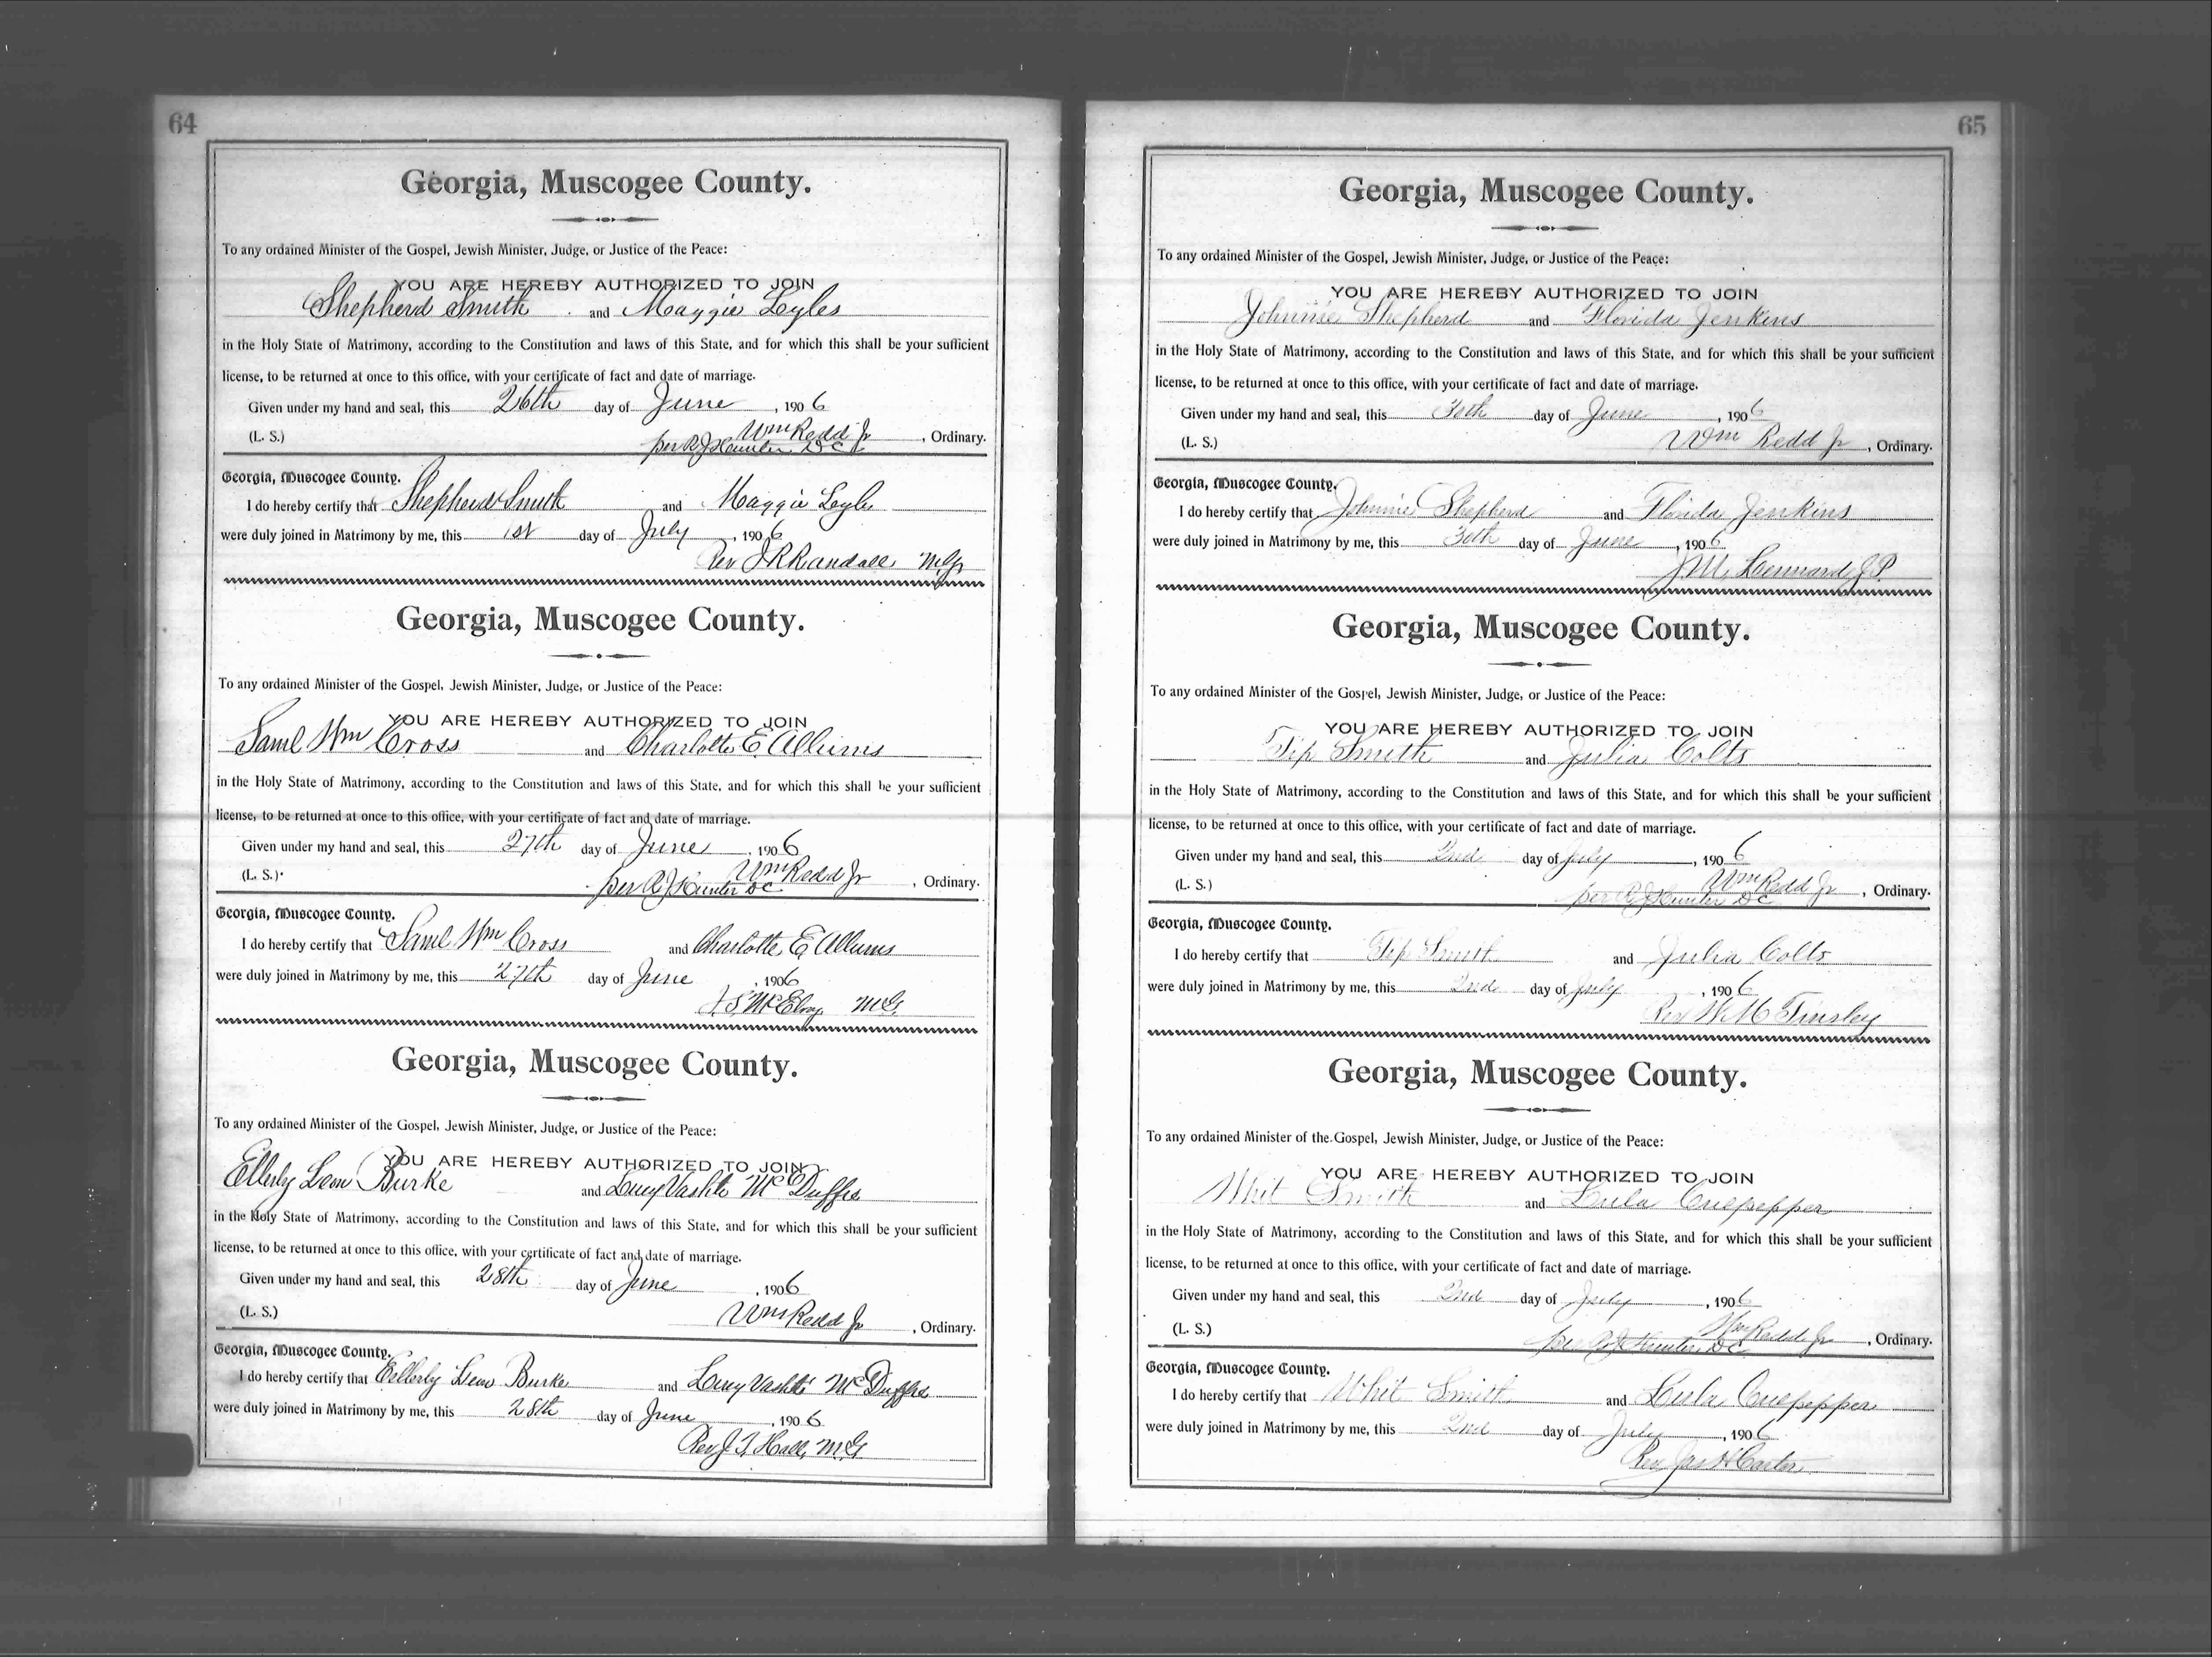 64
Georgia, Muscogee County.
To any ordained Minister of the Gospel, Jewish Minister, Judge, or Justice of the Peace:
YOU ARE HEREBY AUTHORIZED TO JOIN
Shepherd Smith and Maggie Lyles
in the Holy State of Matrimony, according to the Constitution and laws of this State, and for which this shall be your sufficient
license, to be returned at once to this office, with your certificate of fact and date of marriage.
Given under my hand and seal, this 26th day of June, 1906
Wm Redd Jr
(L. S.) per R J Hunter DC, Ordinary.
Georgia, Muscogee County.
I do hereby certify that Shepherd Smith and Maggie Lyles
were duly joined in Matrimony by me, this 1st day of July, 1906
Rev J R Randall M.G.
Georgia, Muscogee County.
To any ordained Minister of the Gospel, Jewish Minister, Judge, or Justice of the Peace:
YOU ARE HEREBY AUTHORIZED TO JOIN
Saml Wm Cross and Charlotte E. Allums
in the Holy State of Matrimony, according to the Constitution and laws of this State, and for which this shall be your sufficient
license, to be returned at once to this office, with your certificate of fact and date of marriage.
Given under my hand and seal, this 27th day of June, 1906
Wm Redd Jr
(L. S.) per R J Hunter DC, Ordinary.
Georgia, Muscogee County.
I do hereby certify that Saml Wm Cross and Charlotte E. Allums
were duly joined in Matrimony by me, this 27th day of June, 1906
McElroy M.G.
Georgia, Muscogee County.
To any ordained Minister of the Gospel, Jewish Minister, Judge, or Justice of the Peace:
YOU ARE HEREBY AUTHORIZED TO JOIN
Ellerly Burke and Lucy Vashti McDuffie
in the Holy State of Matrimony, according to the Constitution and laws of this State, and for which this shall be your sufficient
license, to be returned at once to this office, with your certificate of fact and date of marriage.
Given under my hand and seal, this 28th day of June, 1906
(L. S.) Wm Redd Jr, Ordinary.
Georgia, Muscogee County.
I do hereby certify that Ellerly Burke and Lucy Vashti McDuffie
were duly joined in Matrimony by me, this 28th day of June, 1906
Rev J. T. Hall, M.G.
65
Georgia, Muscogee County.
To any ordained Minister of the Gospel, Jewish Minister, Judge, or Justice of the Peace:
YOU ARE HEREBY AUTHORIZED TO JOIN
Johnnie Shepherd and Florida Jenkins
in the Holy State of Matrimony, according to the Constitution and laws of this State, and for which this shall be your sufficient
license, to be returned at once to this office, with your certificate of fact and date of marriage.
Given under my hand and seal, this 30th day of June, 1906
(L. S.) Wm Redd Jr, Ordinary.
Georgia, Muscogee County.
I do hereby certify that Johnnie Shepherd and Florida Jenkins
were duly joined in Matrimony by me, this 30th day of June, 1906
J. M. Lennard J P
Georgia, Muscogee County.
To any ordained Minister of the Gospel, Jewish Minister, Judge, or Justice of the Peace:
YOU ARE HEREBY AUTHORIZED TO JOIN
Tip Smith and Julia Colts
in the Holy State of Matrimony, according to the Constitution and laws of this State, and for which this shall be your sufficient
license, to be returned at once to this office, with your certificate of fact and date of marriage.
Given under my hand and seal, this 2nd day of July, 1906
Wm Redd Jr
(L. S.) per R J Hunter DC, Ordinary.
Georgia, Muscogee County.
I do hereby certify that Tip Smith and Julia Colts
were duly joined in Matrimony by me, this 2nd day of July, 1906
Rev W. M Tinsley
Georgia, Muscogee County.
To any ordained Minister of the Gospel, Jewish Minister, Judge, or Justice of the Peace:
YOU ARE HEREBY AUTHORIZED TO JOIN
Whit Smith and Lula Culpepper
in the Holy State of Matrimony, according to the Constitution and laws of this State, and for which this shall be your sufficient
license, to be returned at once to this office, with your certificate of fact and date of marriage.
Given under my hand and seal, this 2nd day of July, 1906
Wm Redd Jr
(L. S.) per R J Hunter DC, Ordinary.
Georgia, Muscogee County.
I do hereby certify that Whit Smith and Lula Culpepper
were duly joined in Matrimony by me, this 2nd day of July, 1906
Rev Jas H Carter